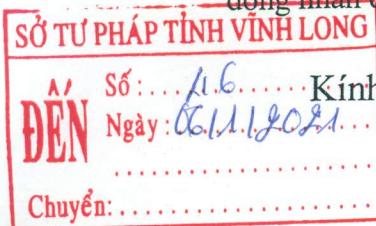 SỞ TƯ PHÁP TỈNH VĨNH LONG
ĐẾN
Số:....46........
Kính
Ngày: 06/1/2021
Chuyển:...................